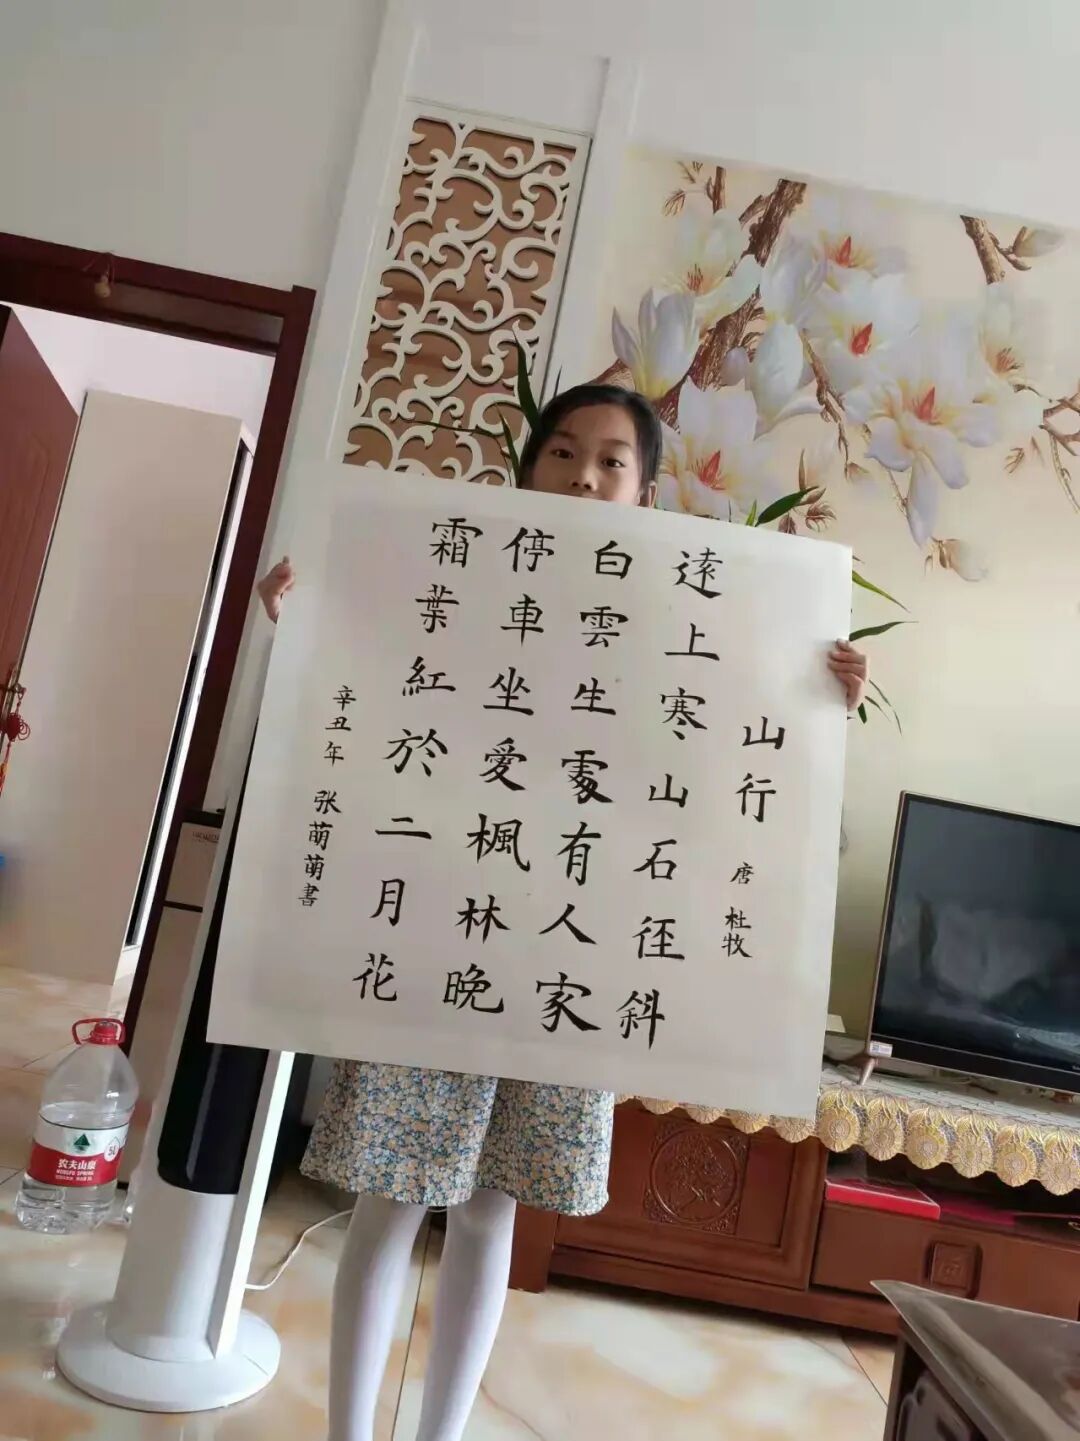 山行 唐 杜牧
遠上寒山石径斜
白雲生處有人家
停車坐愛楓林晚
霜葉紅於二月花
辛丑年 张萌萌書
农夫山泉
NONGFU SPRING
5L